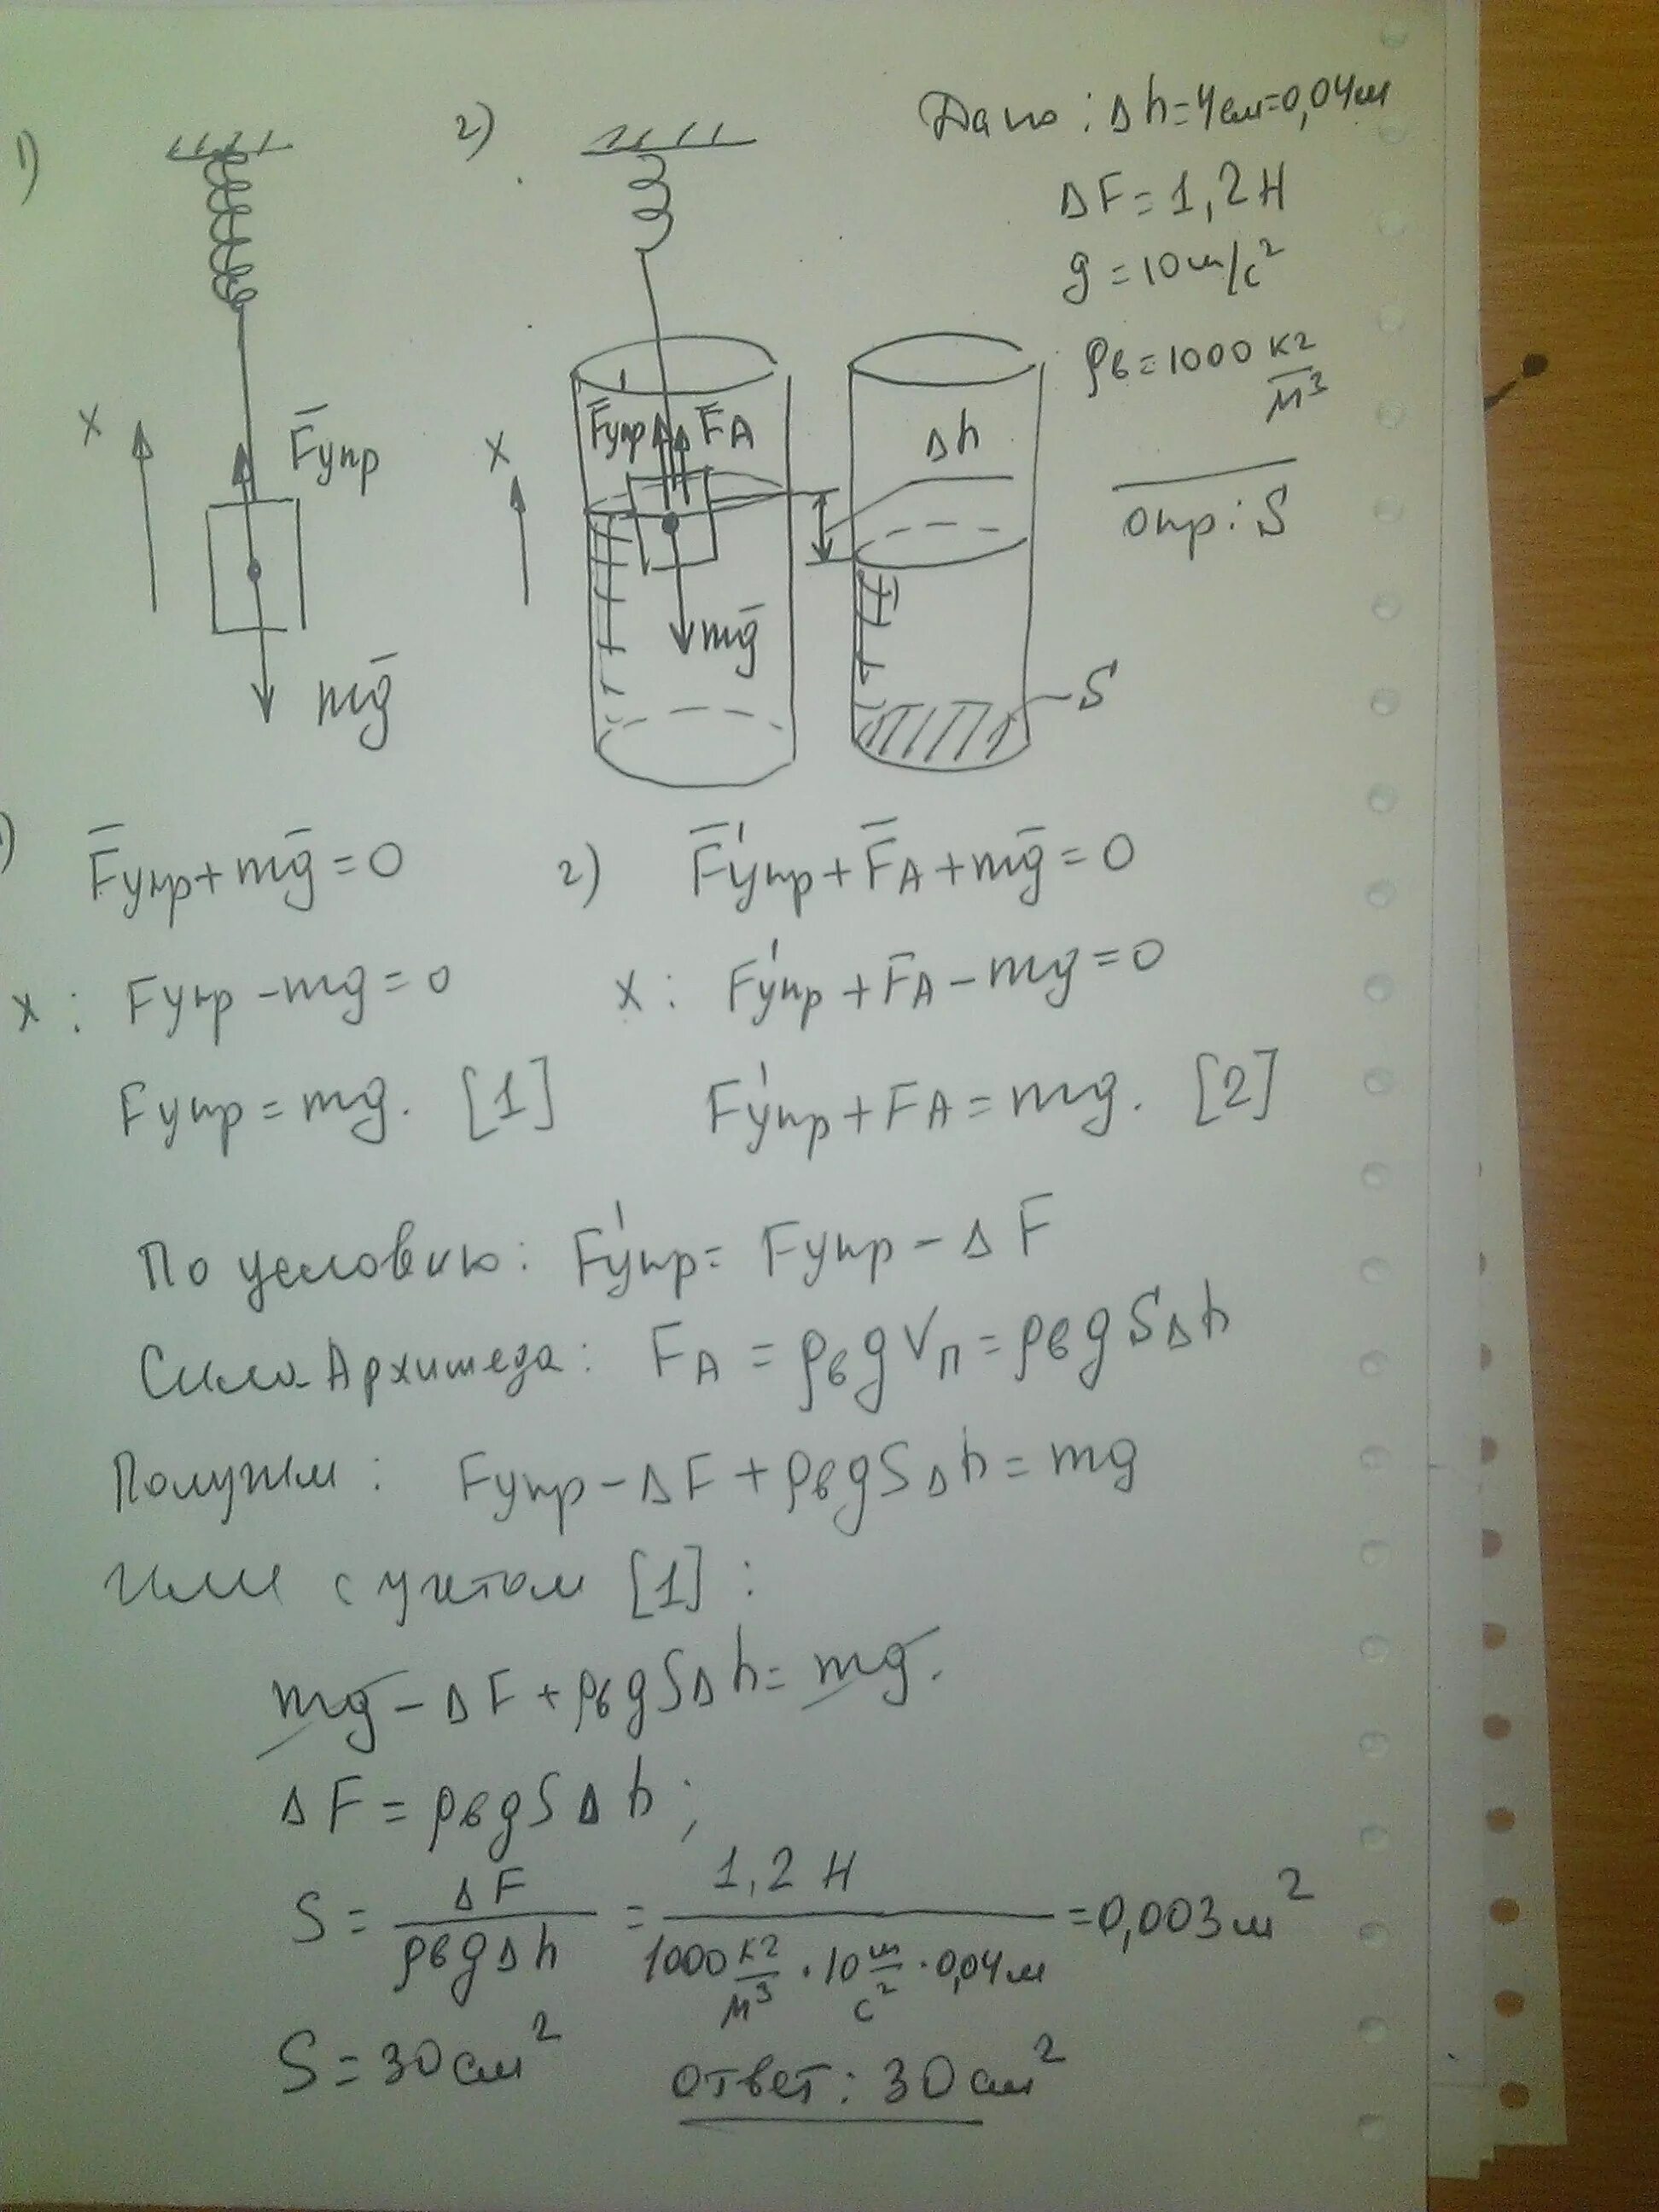 1)
2)
Дано: Δh=4см=0,04м
ΔF=1,2Н
g=10м/с²
ρв=1000 кг/м³
опр: S
X
F̄упр
mḡ
X
F̄упр
F̄А
mḡ
Δh
S
1) F̄упр+mḡ=0
2) F̄'упр+F̄А+mḡ=0
x: Fупр-mg=0
x: F'упр+FА-mg=0
Fупр=mg. [1]
F'упр+FА=mg. [2]
По условию: F'упр=Fупр-ΔF
Сила Архимеда: FА=ρвgVп=ρвgSΔh
Получим: Fупр-ΔF+ρвgSΔh=mg
Или с учетом [1]:
mg-ΔF+ρвgSΔh=mg.
ΔF=ρвgSΔh;
S=ΔF/ρвgΔh=1,2Н/1000кг/м³·10м/с²·0,04м=0,003м²
S=30см²
ответ: 30см²